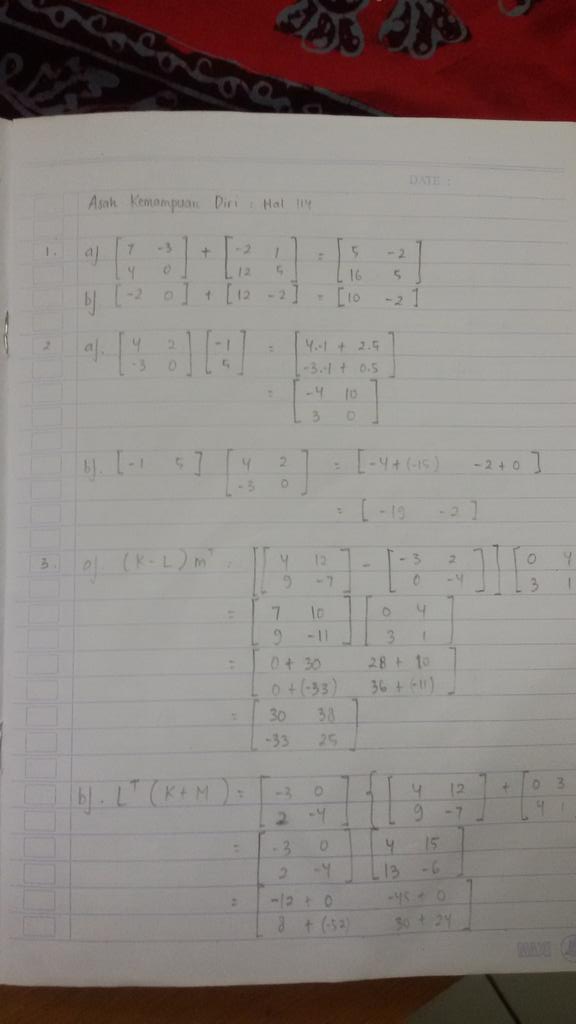 DATE :
Asah Kemampuan Diri : Hal 114
1. a) [7 -3; 4 0] + [-2 1; 12 5] = [5 -2; 16 5]
b) [-2 0] + [12 -2] = [10 -2]
2 a). [4 2; -3 0] [-1; 5] = [4.-1 + 2.5; -3.-1 + 0.5]
= [-4 10; 3 0]
b). [-1 5] [4 2; -3 0] = [-4+(-15) -2+0]
= [-19 -2]
3. a) (K-L) m^T = [[4 12; 9 -7] - [-3 2; 0 -4]] [0 4; 3 1]
= [7 10; 9 -11] [0 4; 3 1]
= [0+30 28+10; 0+(-33) 36+(-11)]
= [30 38; -33 25]
b). L^T (K+M) = [-3 0; 2 -4] {[4 12; 9 -7] + [0 3; 4 1]
= [-3 0; 2 -4] [4 15; 13 -6]
= [-12+0 -45+0; 8+(-52) 30+24]